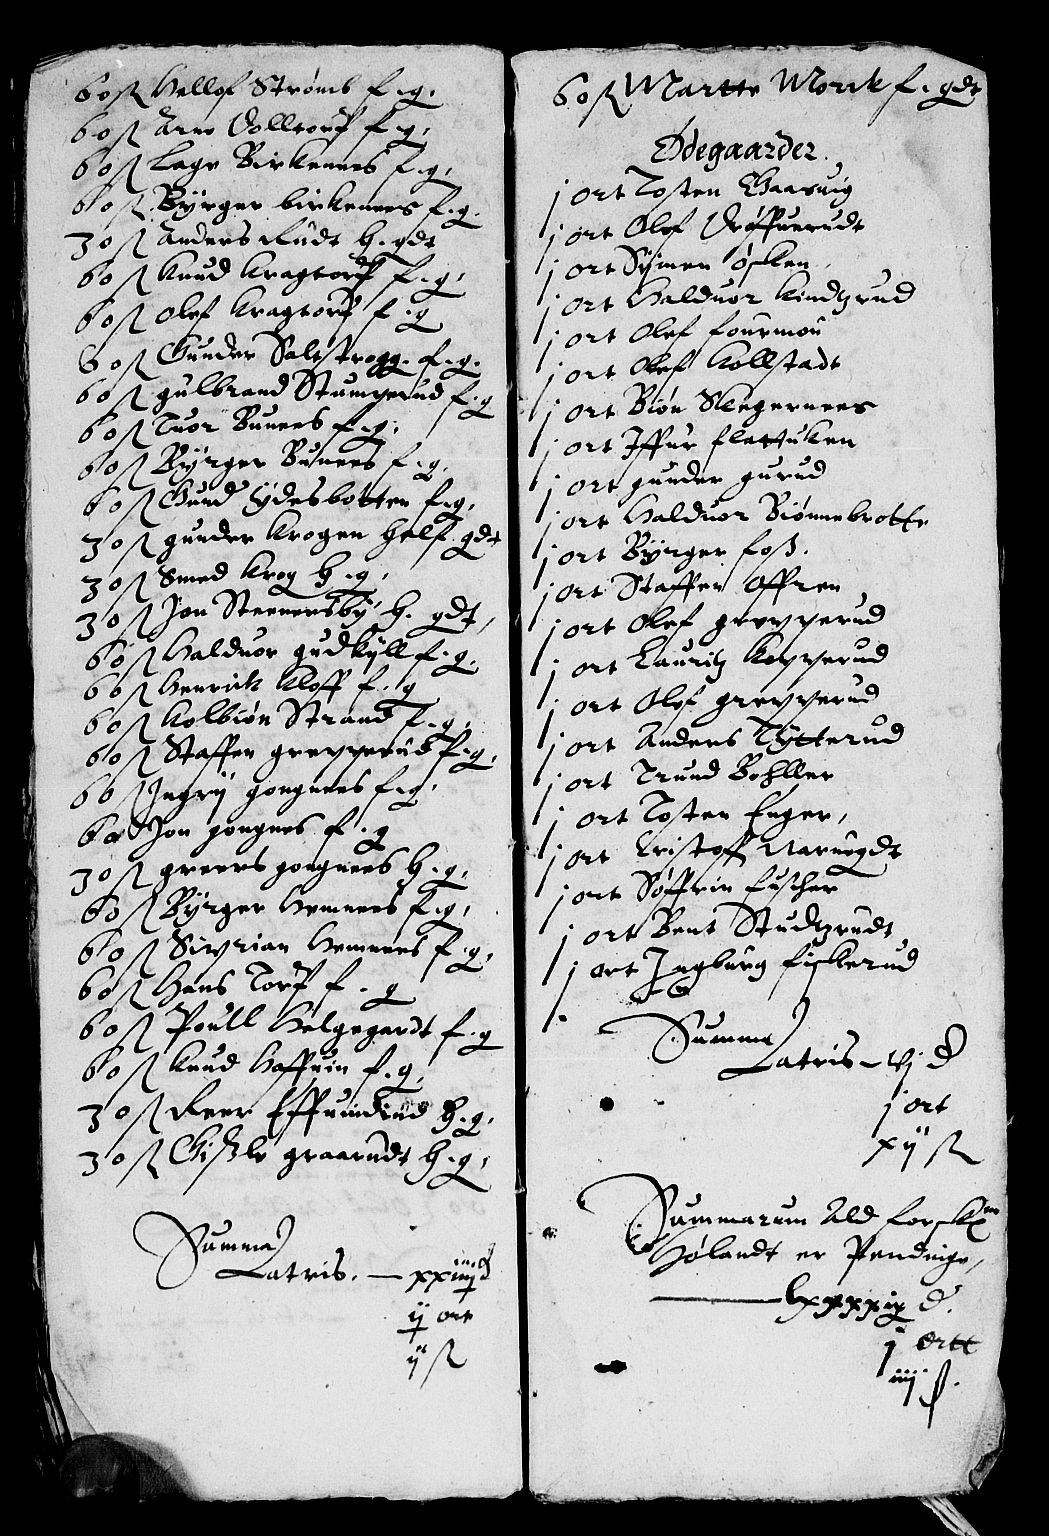 60 ß Hellof Strømb f. g.
60 ß Arne Volltorp f. g.
60 ß Lage Birkenees f. g.
60 ß Byrger birkenees f. g.
30 ß Anders Rudt h. gdt
60 ß Knud Kragtorp f. g.
60 ß Olef Kragtorp f. g
60 ß Gunder Saltstrogg. f. g.
60 ß gulbrand Stumperud f. g
60 ß Tuor Bunees f. g.
60 ß Byrger Bunees f. g.
60 ß Gund ydesbotten f. g.
30 ß gunder Krogen half gdt
30 ß Smed Krog h. g.
30 ß Jon Steenersby h. gdt,
60 ß Halduor gudkyll f. g.
60 ß Henrick Kloff f. g
60 ß Kolbiøn Strand f. g.
60 ß Staffen grepperud f. g.
60 ß Ingrij gongnees f. g.
60 ß Jon gongnes f. g
30 ß greers gongnees h. g.
60 ß Byrger Hemnees f. g.
60 ß Siprian Hemnees f. g.
60 ß Hans Torp f. g
60 ß Poull Helgegardt f. g
60 ß Knud Haffuin f. g.
30 ß Reer Effuindrud h. g.
30 ß Gißle graarudt h. g.
Summa
Latris. — xxiiij d
ij ort
ij ß
60 ß Martte Morck f. gdt
Ødegaarder.
j ort Tosten Gaasuig
j ort Olef Drøffuerudt
j ort Symen øsken
j ort Halduor Kindzrud
j ort Olef fourmou
j ort Olef Kollstadt
j ort Biøn Slegernees
j ort Iffuer flattuken
j ort gunder gurud
j ort Halduor Biønnebrotte
j ort Byrger foß.
j ort Staffen Offren
j ort Olef grepperud
j ort Lauritz Kopperud
j ort Olef grepperud
j ort Anders Tytterud
j ort Trund Bøhller
j ort Tosten Enger,
j ort Cristoff Naruegdt
j ort Søffrin fuscher
j ort Bent Studtzrudt
j ort Ingburg fiskerud
Summa
Latris – vj d
j ort
xij ß
Summarum Ald forskne
Hølandt er Pendinge,
— lxxxxix d.
j ortt
iiij ß.